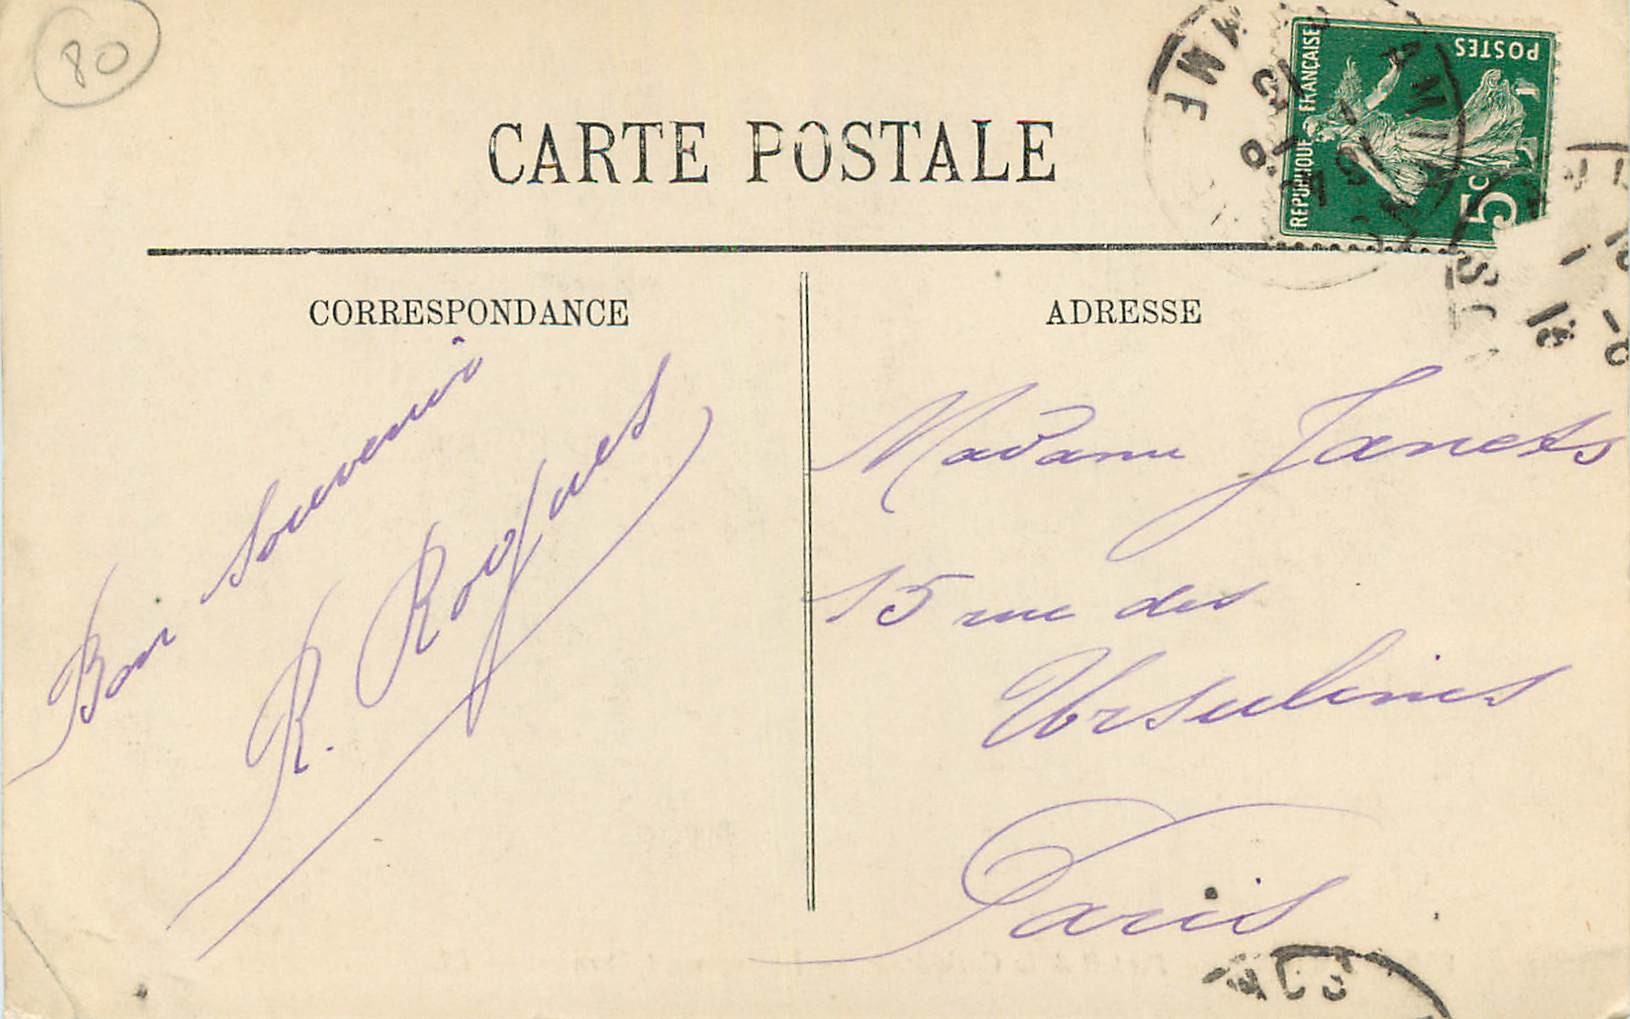 80
CARTE POSTALE
REPUBLIQUE FRANÇAISE
POSTES
5c
CORRESPONDANCE
ADRESSE
Bon souvenir
R. Roques
Madame Janets
15 rue des
Ursulines
Paris